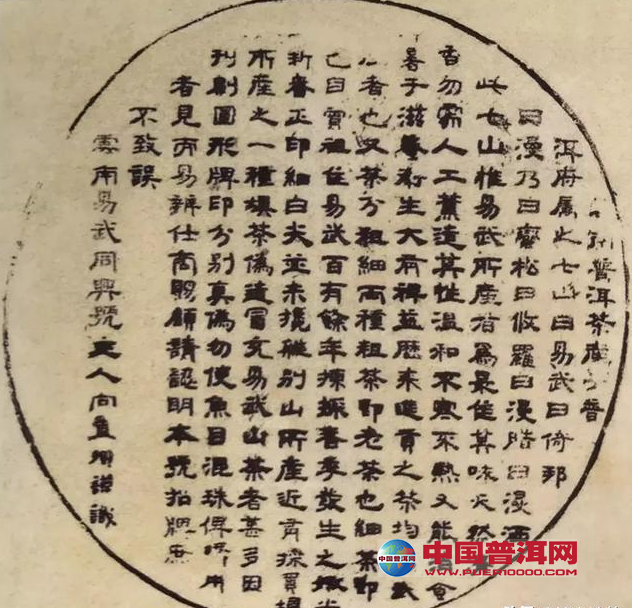 普洱茶產於普
洱府屬之七山曰易武曰倚邦
曰漫乃曰磨松曰攸羅曰漫腊曰漫洒
此七山惟易武所產者為最佳其味天然
香勿需人工薰造其性溫和不寒不熱又能消食
暑于滋養衛生大有裨益歷来進貢之茶均武
者也又茶分粗細兩種粗茶即老茶也細茶即
祖住易武百有餘年揀採春季發生之嫩尖
新春正印細白尖並未攙雜別山所產近有採買
所產之一種壩茶偽造冒充易武山茶者甚多因
刊刻圓形牌印分別真偽勿使魚目混珠俾用
者見而易辨仕商賜顧請認明本號招牌庶
不致誤
雲南易武同興號主人向謹識
中国普洱网
WWW.PUER10000.COM